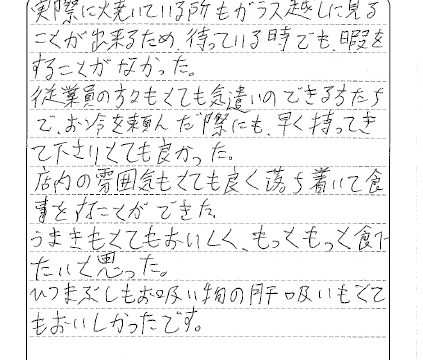 実際に焼いている所もガラス越しに見る
ことが出来るため、待っている時でも、暇を
することがなかった。
従業員の方々もとても気遣いのできる方たち
で、お冷を頼んだ際にも、早く持ってき
て下さりとても良かった。
店内の雰囲気もとても良く落ち着いて食
事をすることができた。
うまきもとてもおいしく、もっともっと食べ
たいと思った。
ひつまぶしもお吸い物の肝吸いもとて
もおいしかったです。